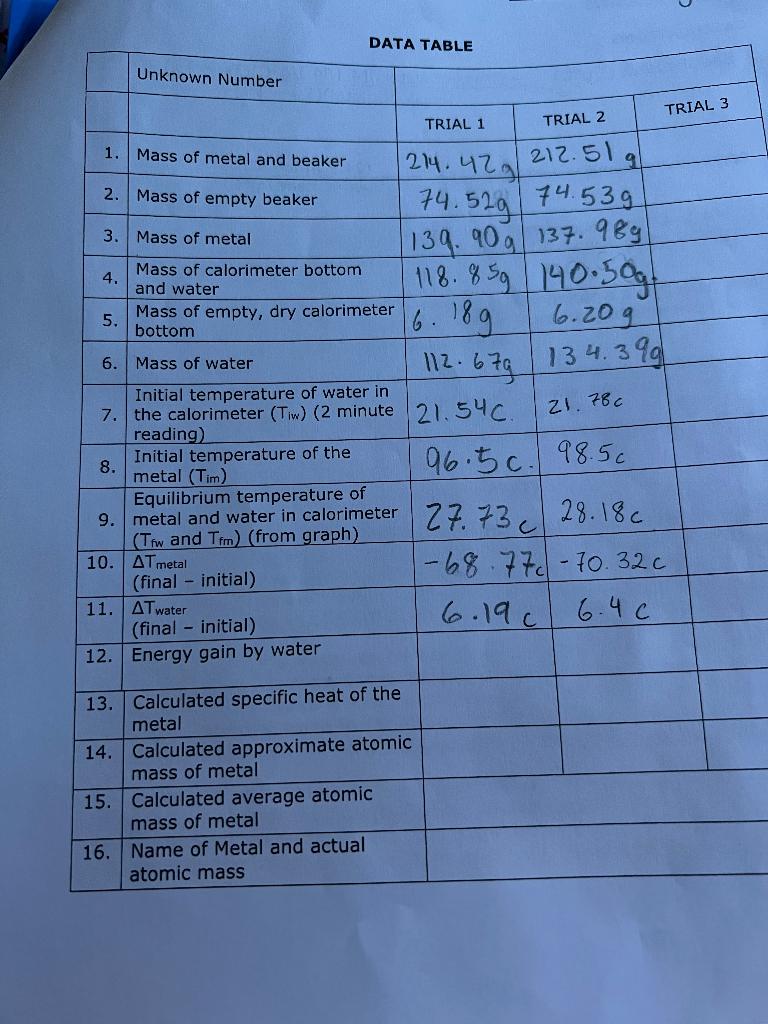 DATA TABLE
Unknown Number
TRIAL 1 TRIAL 2 TRIAL 3
1. Mass of metal and beaker 214.42g 212.51g
2. Mass of empty beaker 74.52g 74.53g
3. Mass of metal 139.90g 137.98g
4. Mass of calorimeter bottom
and water 118.85g 140.50g
5. Mass of empty, dry calorimeter
bottom 6.18g 6.20g
6. Mass of water 112.67g 134.39g
7. Initial temperature of water in
the calorimeter (Tiw) (2 minute
reading) 21.54c. 21.78c
8. Initial temperature of the
metal (Tim) 96.5c. 98.5c
9. Equilibrium temperature of
metal and water in calorimeter
(Tfw and Tfm) (from graph) 27.73c 28.18c
10. ΔTmetal
(final – initial) -68.77c -70.32c
11. ΔTwater
(final – initial) 6.19c 6.4c
12. Energy gain by water
13. Calculated specific heat of the
metal
14. Calculated approximate atomic
mass of metal
15. Calculated average atomic
mass of metal
16. Name of Metal and actual
atomic mass